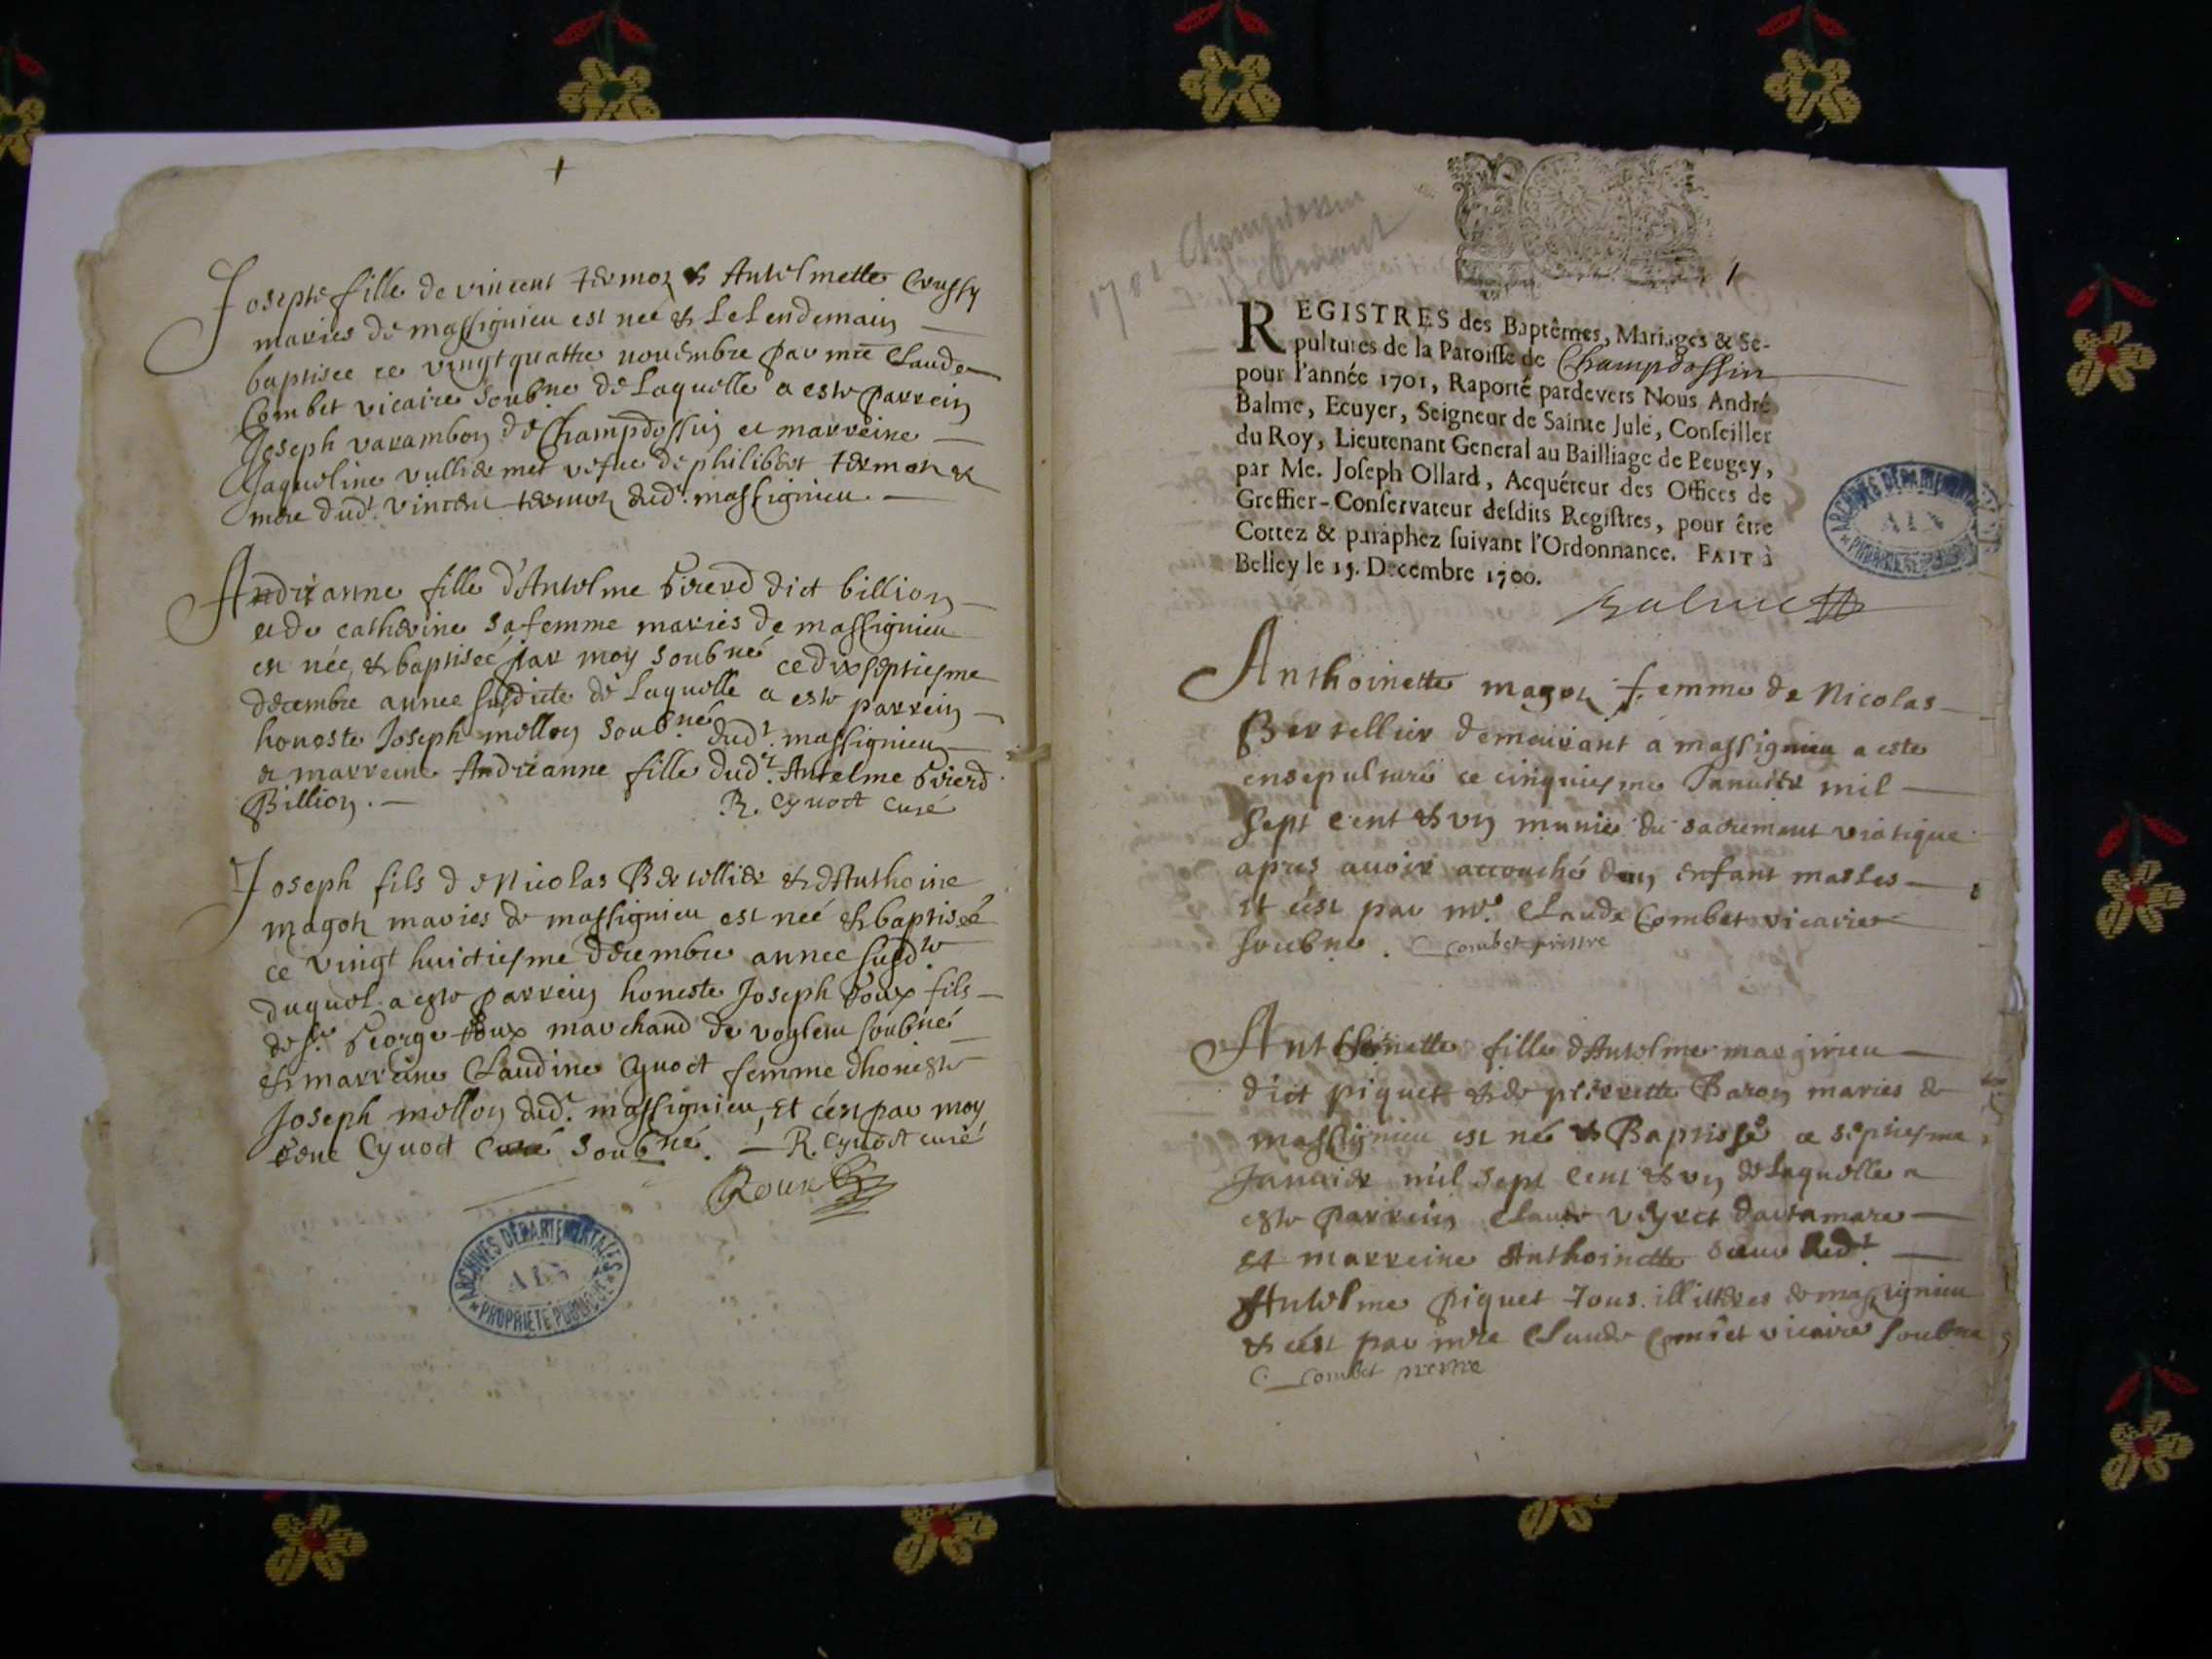 Josephe fille de vincent termoz & Antelmette Crussy
maries de massignieu est neé & Le Lendemain
baptisee ce vingt quattre nouembre par mre Claude
Combet vicaire soubne de Laquelle a este parrein
Joseph varambon de Champdossin et marreine
Jaqueline vulliermet vefue de philibert termoz &
mere dudt. vincent termoz dudt. massignieu.
Andrianne fille d'Antelme Girerd dict billion
et de catherine sa femme maries de massignieu
est née, & baptisée par moy soubné ce dixseptiesme
decembre annee susdicte de Laquelle a este parrein
honeste Joseph mollon soubné dudt. massignieu
& marreine Andrianne fille dudt. Antelme Girerd
Billion.
R. Cynoct curé
Joseph fils de Nicolas Bertellier & d'Anthoine
magon maries de massignieu est neé & baptiseé
ce vingt huictiesme decembre annee susdte
duquel a este parrein honeste Joseph Roux fils
de sr. George Roux marchand de voglein soubné
& marreine Claudine Cynoct femme dhoneste
Joseph mollon dudt. massignieu, et c'est par moy
René Cynoct Curé soubné. R. Cynoct curé
Roux
ARCHIVES DÉPARTEMENTALES
AIN
* PROPRIÉTÉ PUBLIQUE *
1701 Champdossin
REGISTRES des Baptêmes, Mariages & Se-
pultures de la Paroisse de Champdossin
pour l'année 1701, Raporté pardevers Nous André
Balme, Ecuyer, Seigneur de Sainte Jule, Conseiller
du Roy, Lieutenant General au Bailliage de Beugey,
par Me. Joseph Ollard, Acquéreur des Offices de
Greffier-Conservateur desdits Registres, pour être
Cottez & paraphez suivant l'Ordonnance. FAIT à
Belley le 15. Decembre 1700.
Balme
ARCHIVES DÉPARTEMENTALES
AIN
* PROPRIÉTÉ PUBLIQUE
Anthoinette magon femme de Nicolas
Bertellier demeurant a massignieu a este
ensepulturé ce cinquiesme Januier mil
sept cent & un munie du sacrement viatique
apres auoir accouché dun enfant masles
et c'est par mre. Claude Combet vicaire
soubne. C Combet prestre
Anthoinette fille d'Antelme marginieu
dict piquet & de pierrette Baron maries de
massignieu est né & Baptisée ce septiesme
Januier mil sept cent & un de Laquelle a
este parrein Claude veyret dartamare
et marreine Anthoinette sœur dudt.
Antelme piquet Tous illitéres de massignieu
& c'est par mre Claude Combet vicaire soubne
C. Combet prestre